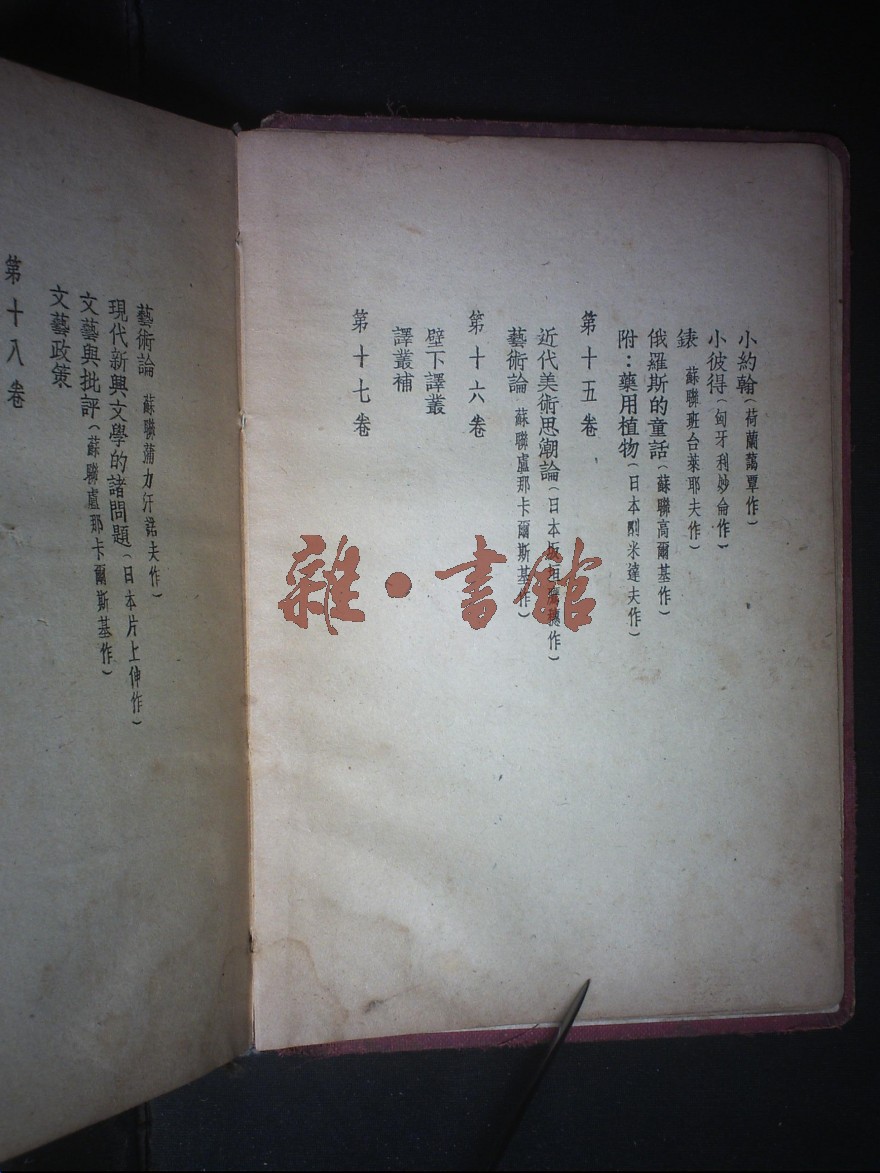 小約翰(荷蘭藹覃作)
小彼得(匈牙利妙倫作)
錶 蘇聯班台萊耶夫作)
俄羅斯的童話(蘇聯高爾基作)
附:藥用植物(日本刈米達夫作)
第十五卷
近代美術思潮論(日本板垣鷹穗作)
藝術論 蘇聯盧那卡爾斯基作)
第十六卷
壁下譯叢
譯叢補
第十七卷
藝術論 蘇聯蒲力汗諾夫作)
現代新興文學的諸問題(日本片上伸作)
文藝與批評(蘇聯盧那卡爾斯基作)
文藝政策
第十八卷
雜·書館